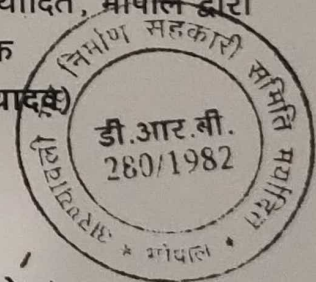 यादित, भोपाल द्वारा
क
यादव)
अरण्यावली निर्माण सहकारी समिति मर्यादित
डी.आर.बी.
280/1982
* भोपाल *